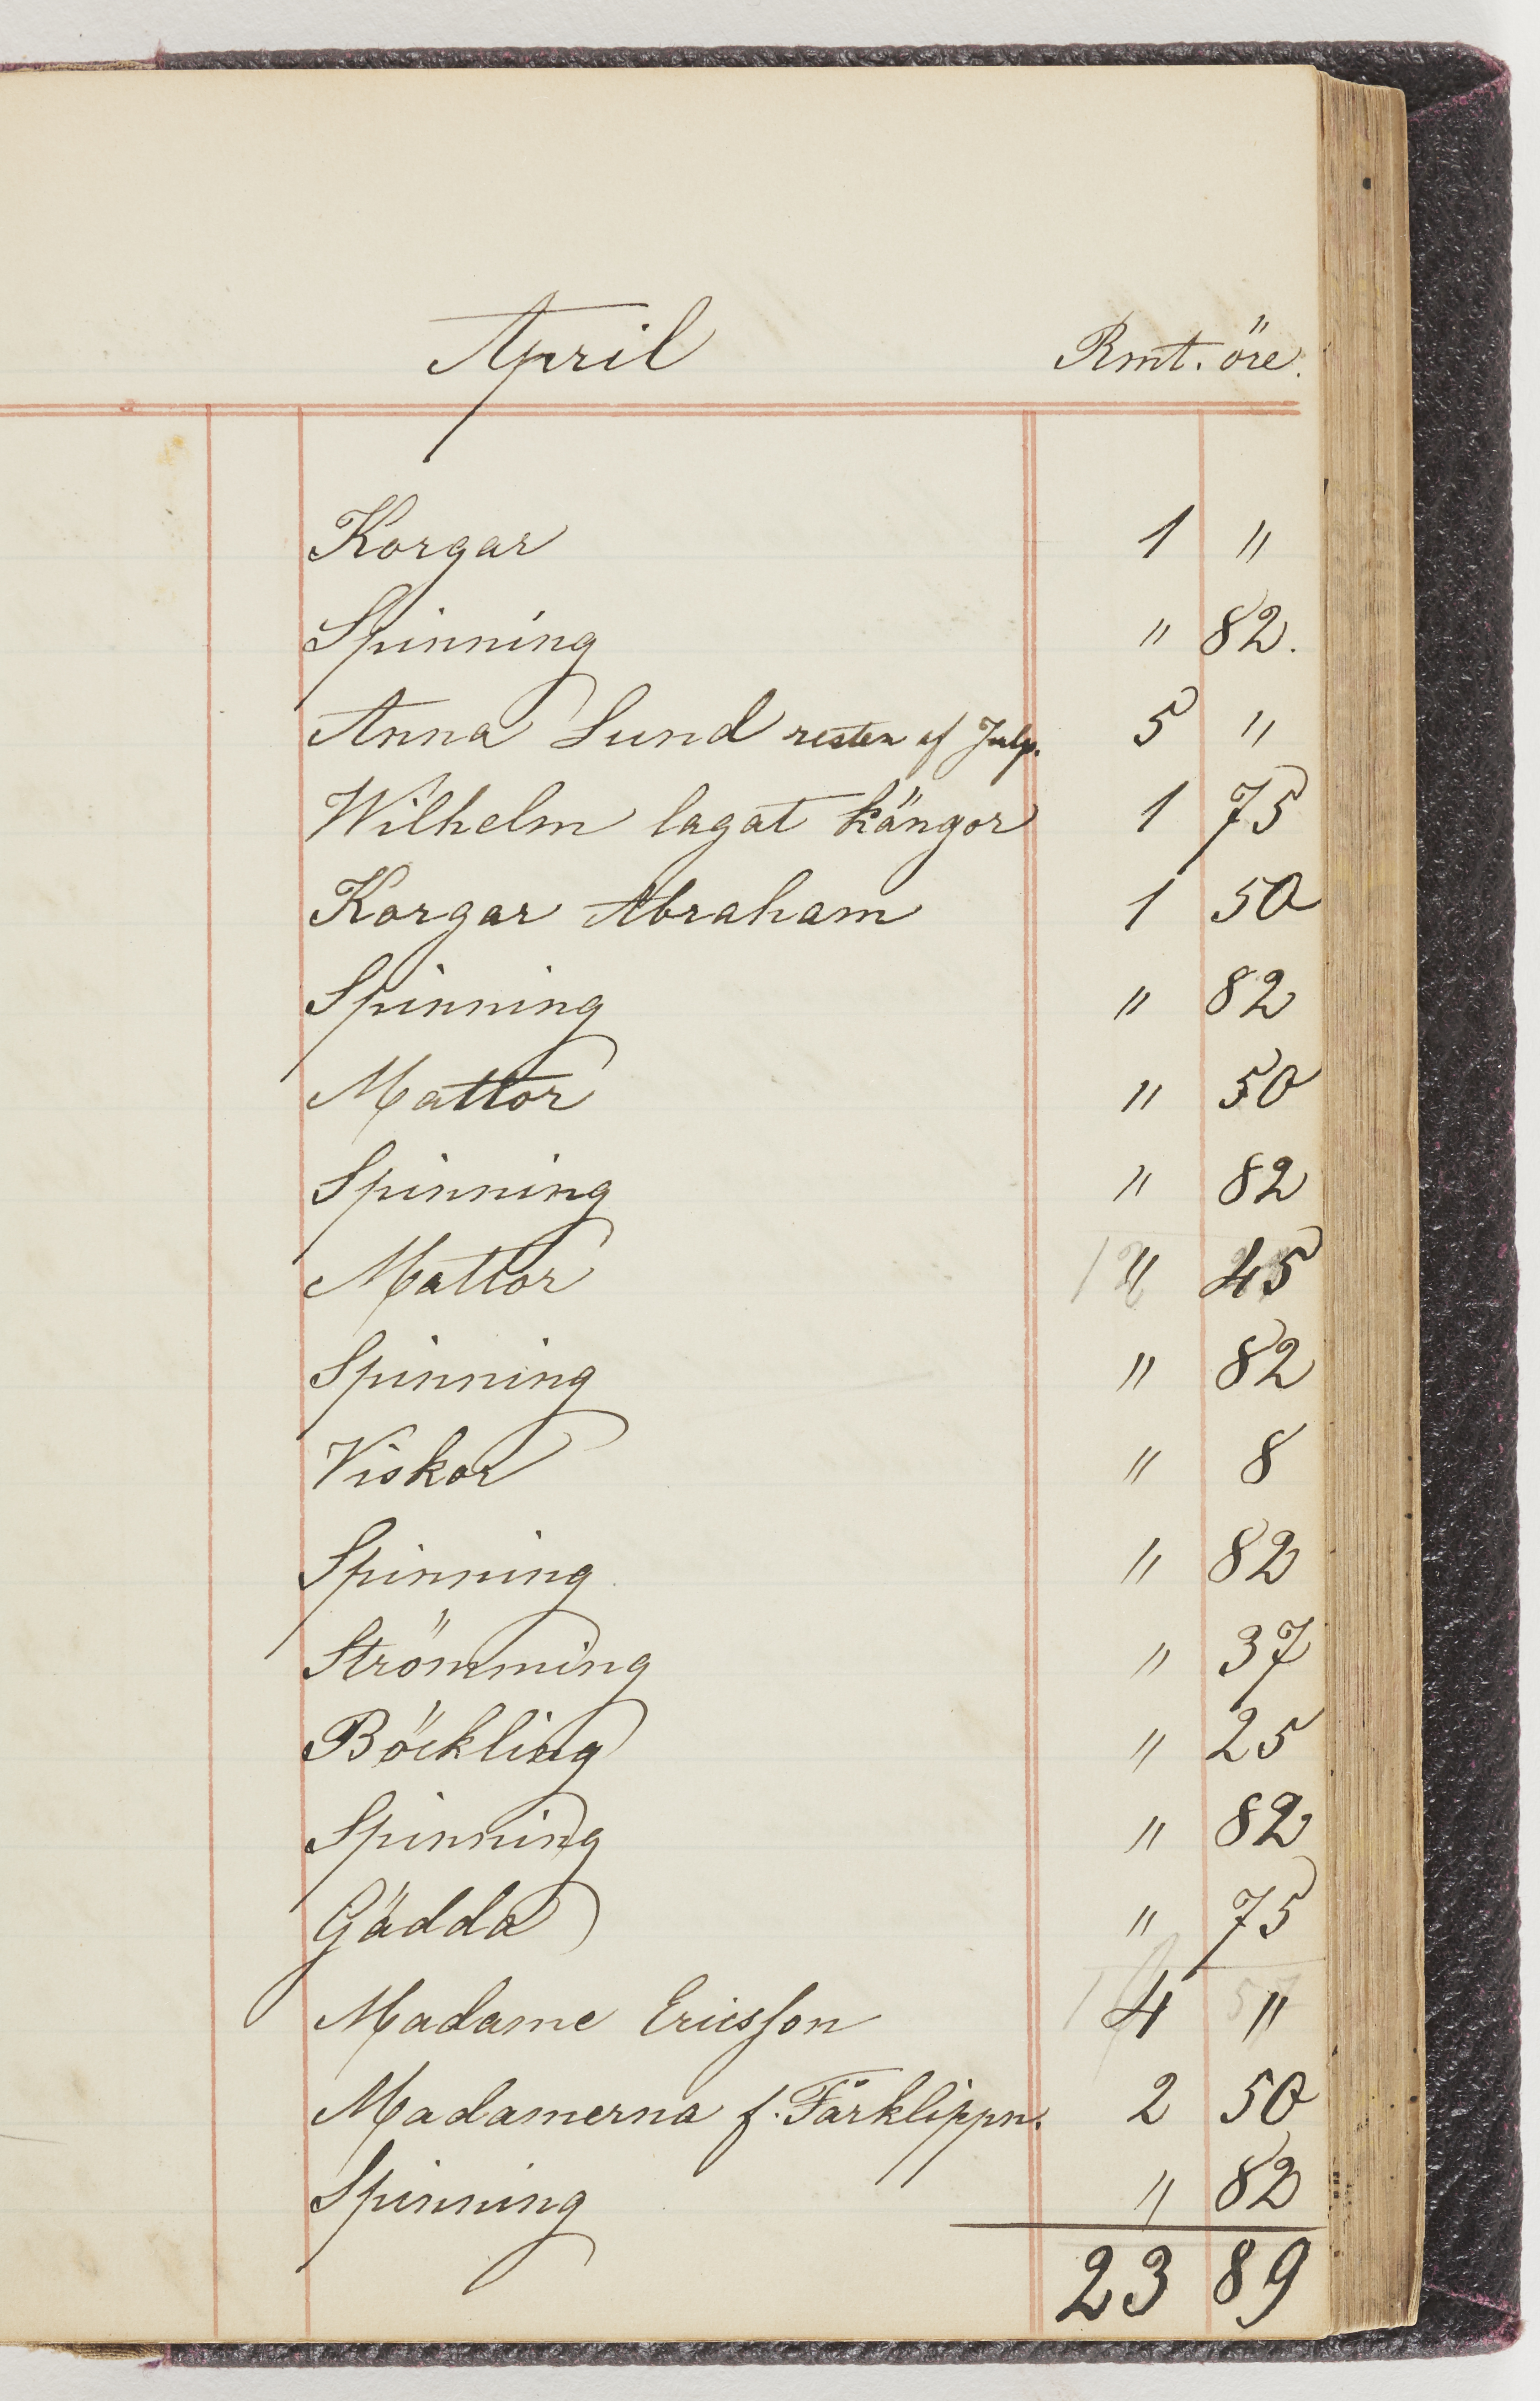 April Rmt. öre.
Korgar 1 "
Spinning " 82.
Anna Lund resten af Julp. 5 "
Wilhelm lagat kängor 1 75
Korgar Abraham 1 50
Spinning " 82
Mattor " 50
Spinning " 82
Mattor " 45
Spinning " 82
Viskor " 8
Spinning " 82
Strömming " 37
Böckling " 25
Spinning " 82
Gädda " 75
Madame Ericsson 4 "
Madamerna f. Fårklippn. 2 50
Spinning " 82
23 89